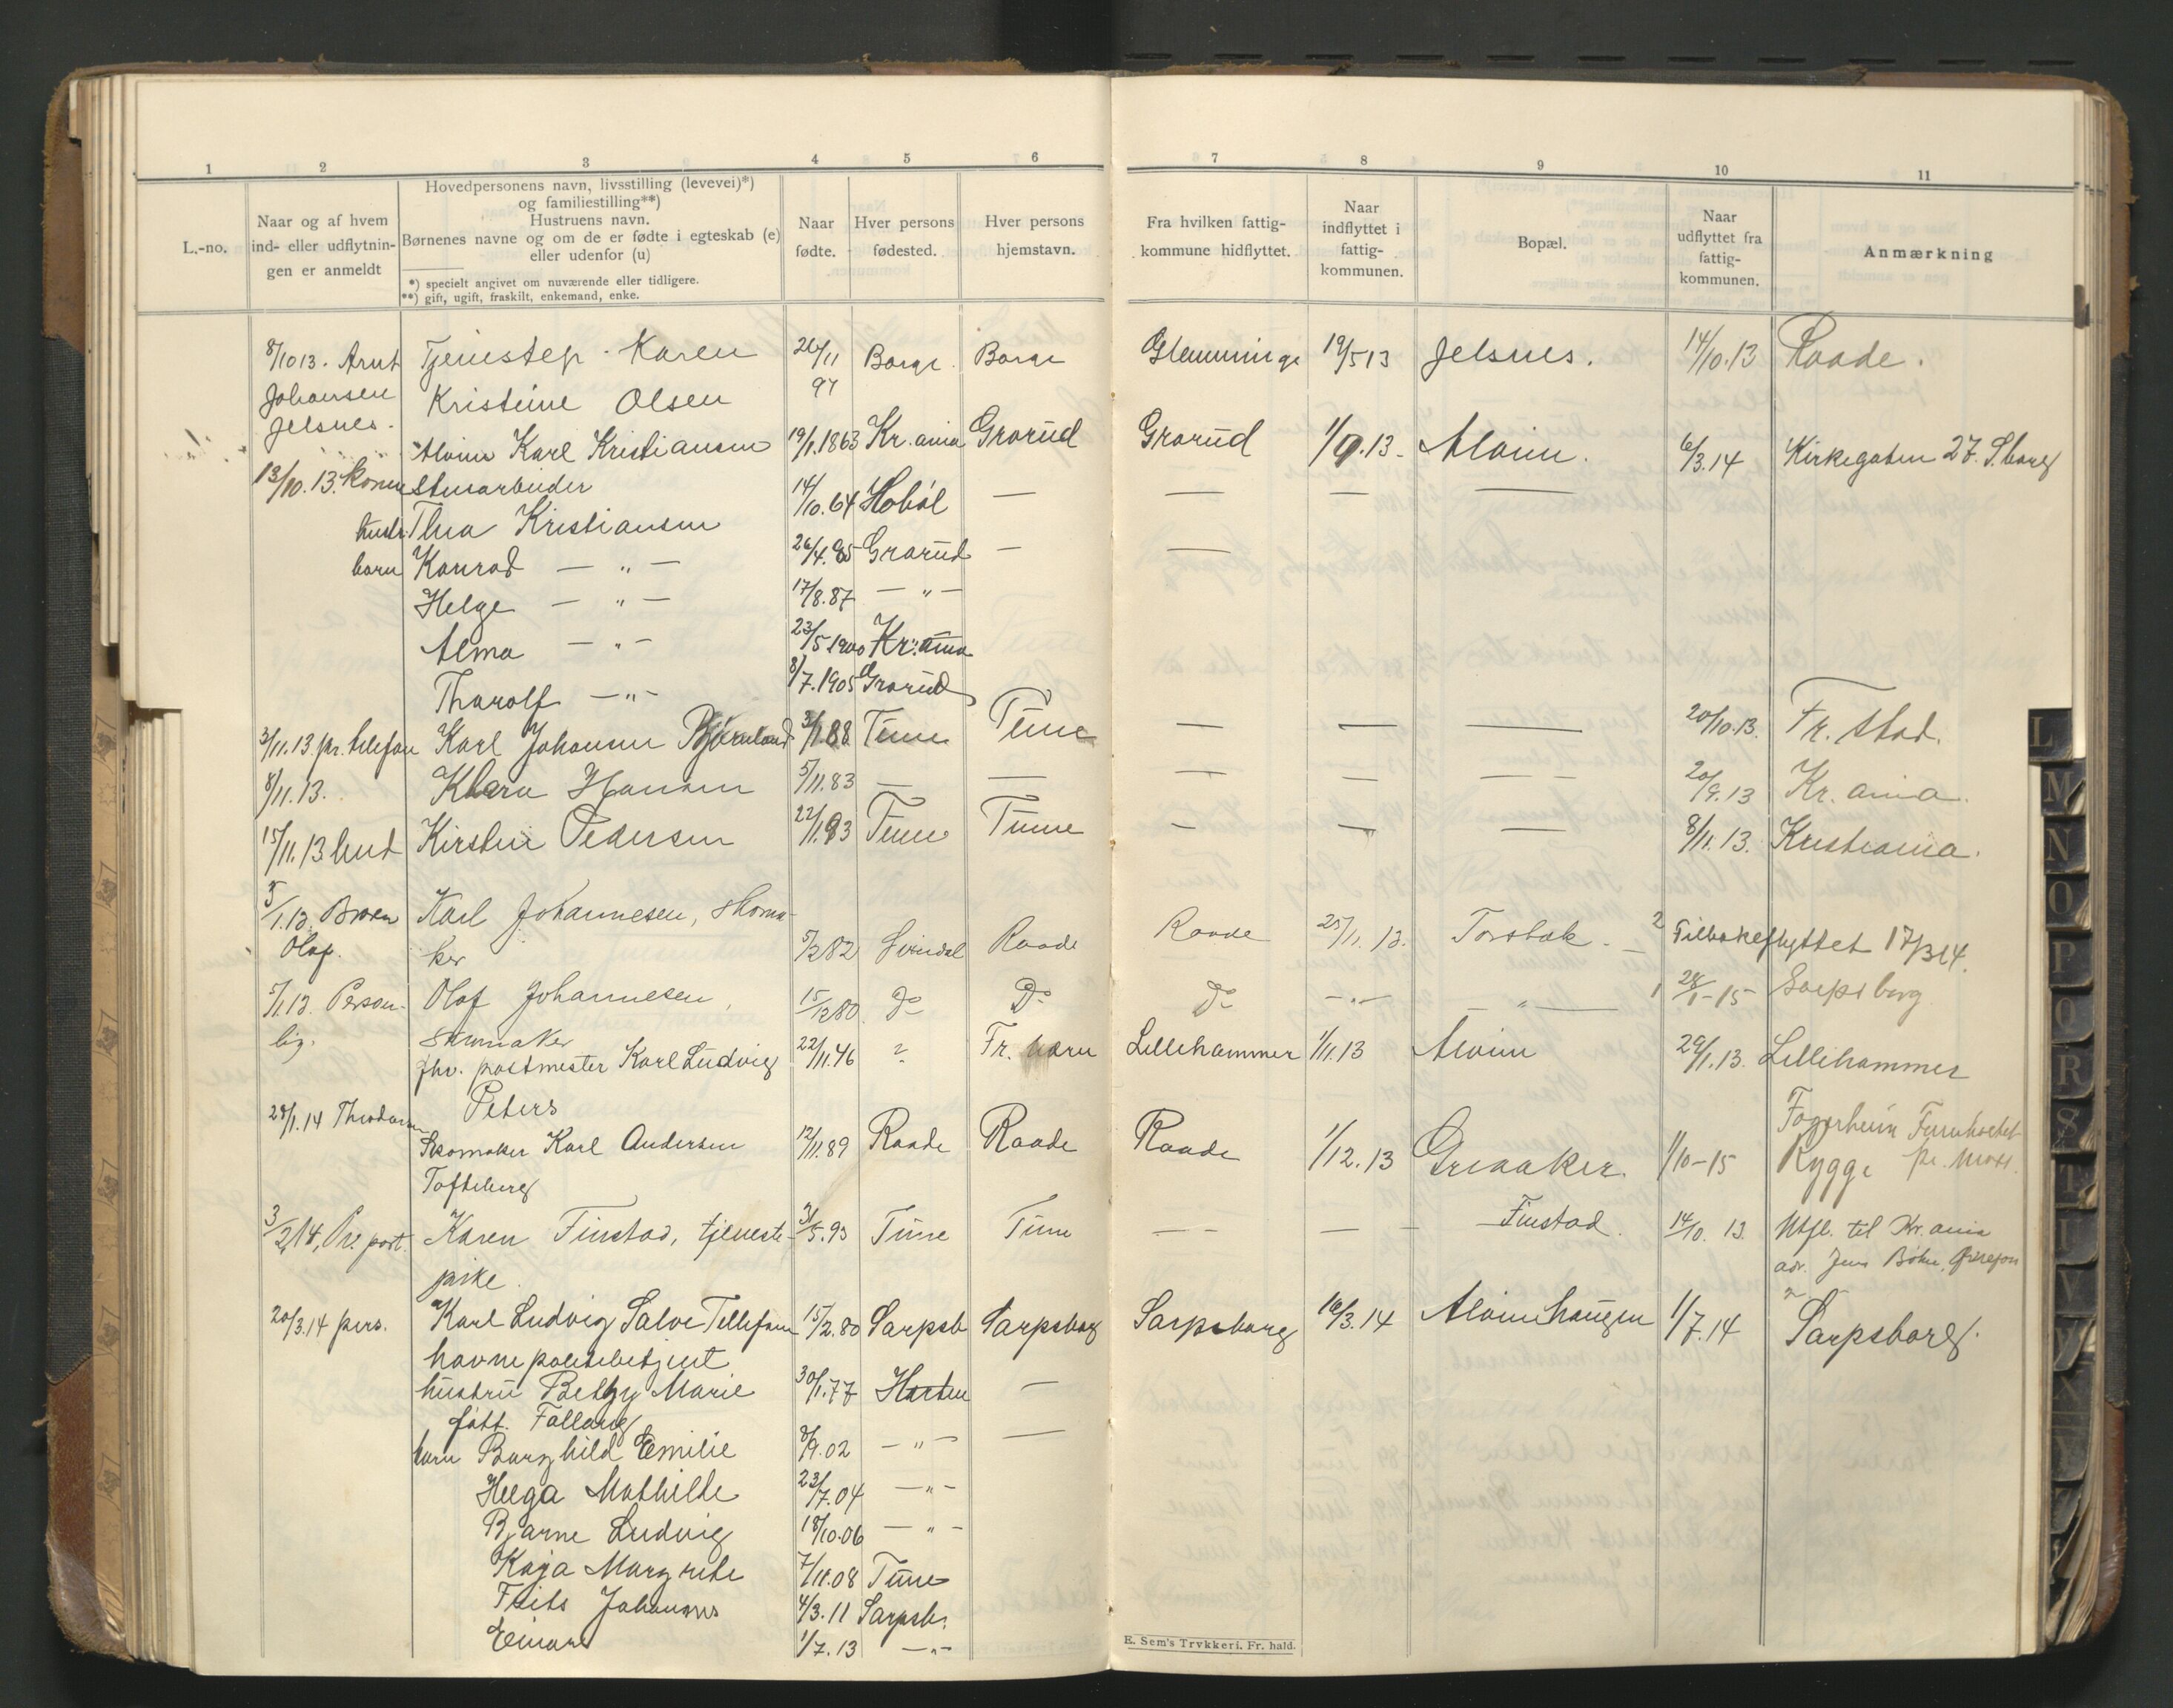 1 2 3 4 5 6 7 8 9 10 11
L.-no.
Naar og af hvem
ind- eller udflytnin-
gen er anmeldt
Hovedpersonens navn, livsstilling (levevei)*)
og familiestilling**)
Hustruens navn.
Børnenes navne og om de er fødte i egteskab (e)
eller udenfor (u)
*) specielt angivet om nuværende eller tidligere.
**) gift, ugift, fraskilt, enkemand, enke.
Naar
fødte.
Hver persons
fødested.
Hver persons
hjemstavn.
Fra hvilken fattig-
kommune hidflyttet.
Naar
indflyttet i
fattig-
kommunen.
Bopæl.
Naar
udflyttet fra
fattig-
kommunen.
Anmærkning
8/10 13. Arnt Tjenestep. Karen 26/11 Borge. Borge Glemminge 19/5 13 Jelsnes. 14/10.13 Raade.
Johansen Kristine Olsen 97
Jelsnes.
Alvin Karl Kristiansen 19/1.1863 Kr.ania Grorud Grorud 1/9.13. Alvim. 6/3.14 Kirkegaten 27. S.borg
13/10.13. konen Stenarbeider
hustr. Thea Kristiansen 14/10.64 Hobøl — — — —
barn Konrad — „ — 26/4.85 Grorud — —
Helge — „ — 17/8.87 — „ —
Alma — „ — 23/5 1900 Kr.ania
Thorolf — „ — 8/7.1905 Grorud
3/11.13 pr. telefon Karl Johansen Bjørnland 3/1.88 Tune Tune — — — 20/10.13. Fr.stad.
8/11.13. Klara Hansen 5/11.83 — — — — — 20/9.13 Kr.ania.
15/11.13 Lund Kirstine Pedersen 22/1.93 Tune Tune — — — 8/11.13. Kristiania.
5/1.13. Broren Karl Johannesen, skoma- 
Olaf. ker 5/2 82 Raade Raade 25/11.13. Torsbæk. — 2 Tilbakeflyttet 17/3 14.
5/1.13. Person- Olaf Johannesen, 15/12 80 Do Do Do — „ — — „ — 1 28/1-15 Sarpsborg.
lig. skomaker
fhv. postmester Karl Ludvig 22/11.46 ? Fr. værn Lillehammer 1/11.13 Alvim 29/1.13. Lillehammer
Peters
28/1.14 Skomaker Karl Andersen 12/11.89 Raade Raade Raade 1/12.13 Greaaker. 1/10-15 Fagerheim
Tofteberg Rygge pr. Moss.
3/2 14, Pr. post. Karen Finstad, tjeneste- 31/5.93 Tune Tune — — — Finstad. 14/10.13. Utfl. til Kr.ania
pike. adr. Jens
20/3.14 pers. Karl Ludvig Salve Tellefsen 15/2.80 Sarpsb Sarpsborg Sarpsborg 16/3.14 Alvimhaugen 1/7.14 Sarpsborg.
havnepolitibetjent
hustru Betzy Marie 30/1.77 Horten —
født. Follaug
barn Borghild Emilie 8/9.02 — „ — —
Helga Mathilde 23/7.04 — „ —
Bjarne Ludvig 18/10.06 — „ —
Kaja Margrete 7/11.08 Tune
Frits Johannes 4/3.11 Sarpsb.
Einar 1/7.13 — „ —
E. Sem's Trykkeri. Fr. hald.
L
M
N
O
P
Q
R
S
T
U
V
Y
X